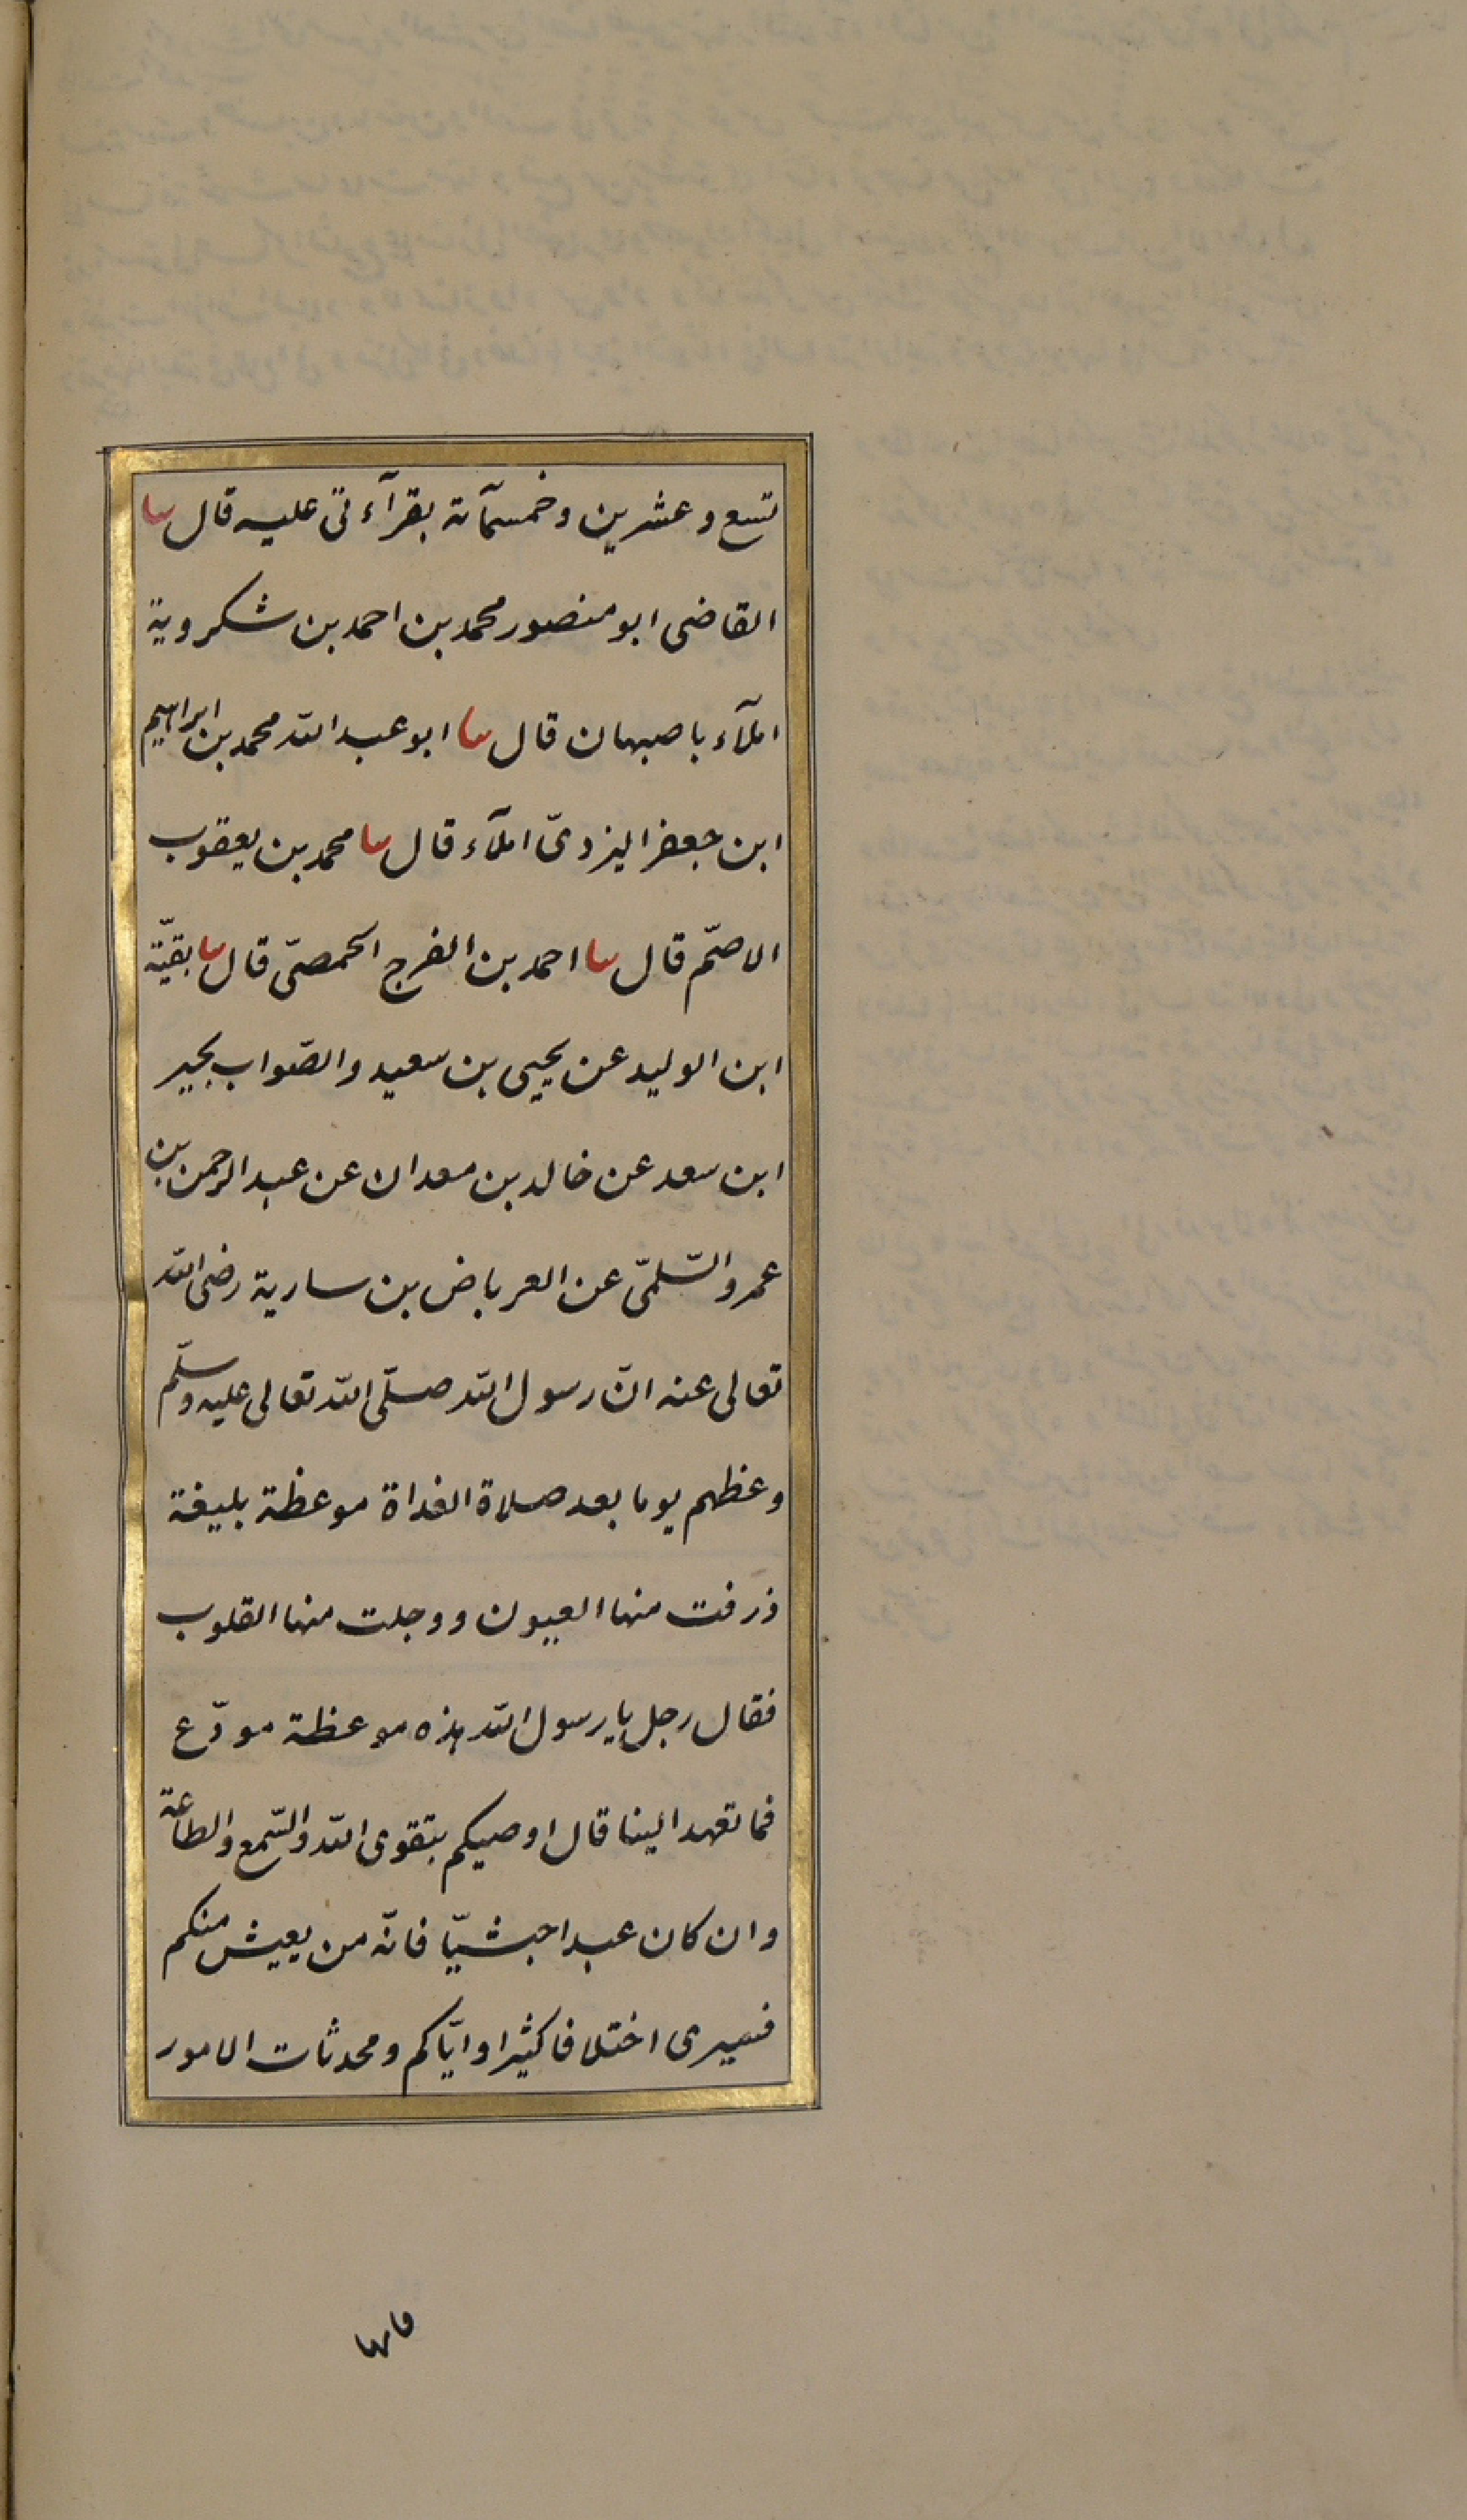 تسع وعشرين وخمسمآئة بقرآءتى عليه قال ثنا
القاضى ابو منصور محمد بن احمد بن شكروية
املآء باصبهان قال ثنا ابو عبد الله محمد بن ابراهيم
ابن جعفر اليزدىّ املآء قال ثنا محمد بن يعقوب
الاصمّ قال ثنا احمد بن الفرج الحمصىّ قال ثنا بقيّة
ابن الوليد عن يحيى بن سعيد والصّواب بحير
ابن سعد عن خالد بن معدان عن عبد الرحمن بن
عمرو السّلمىّ عن العرباض بن سارية رضى الله
تعالى عنه انّ رسول الله صلّى الله تعالى عليه وسلّم
وعظهم يوما بعد صلاة الغداة موعظة بليغة
ذرفت منها العيون ووجلت منها القلوب
فقال رجل يا رسول الله هذه موعظة مودّع
فما تعهد الينا قال اوصيكم بتقوى الله والسّمع والطاعة
وان كان عبدا حبشيّا فانّه من يعيش منكم
فسيرى اختلافا كثيرا وايّاكم ومحدثات الامور